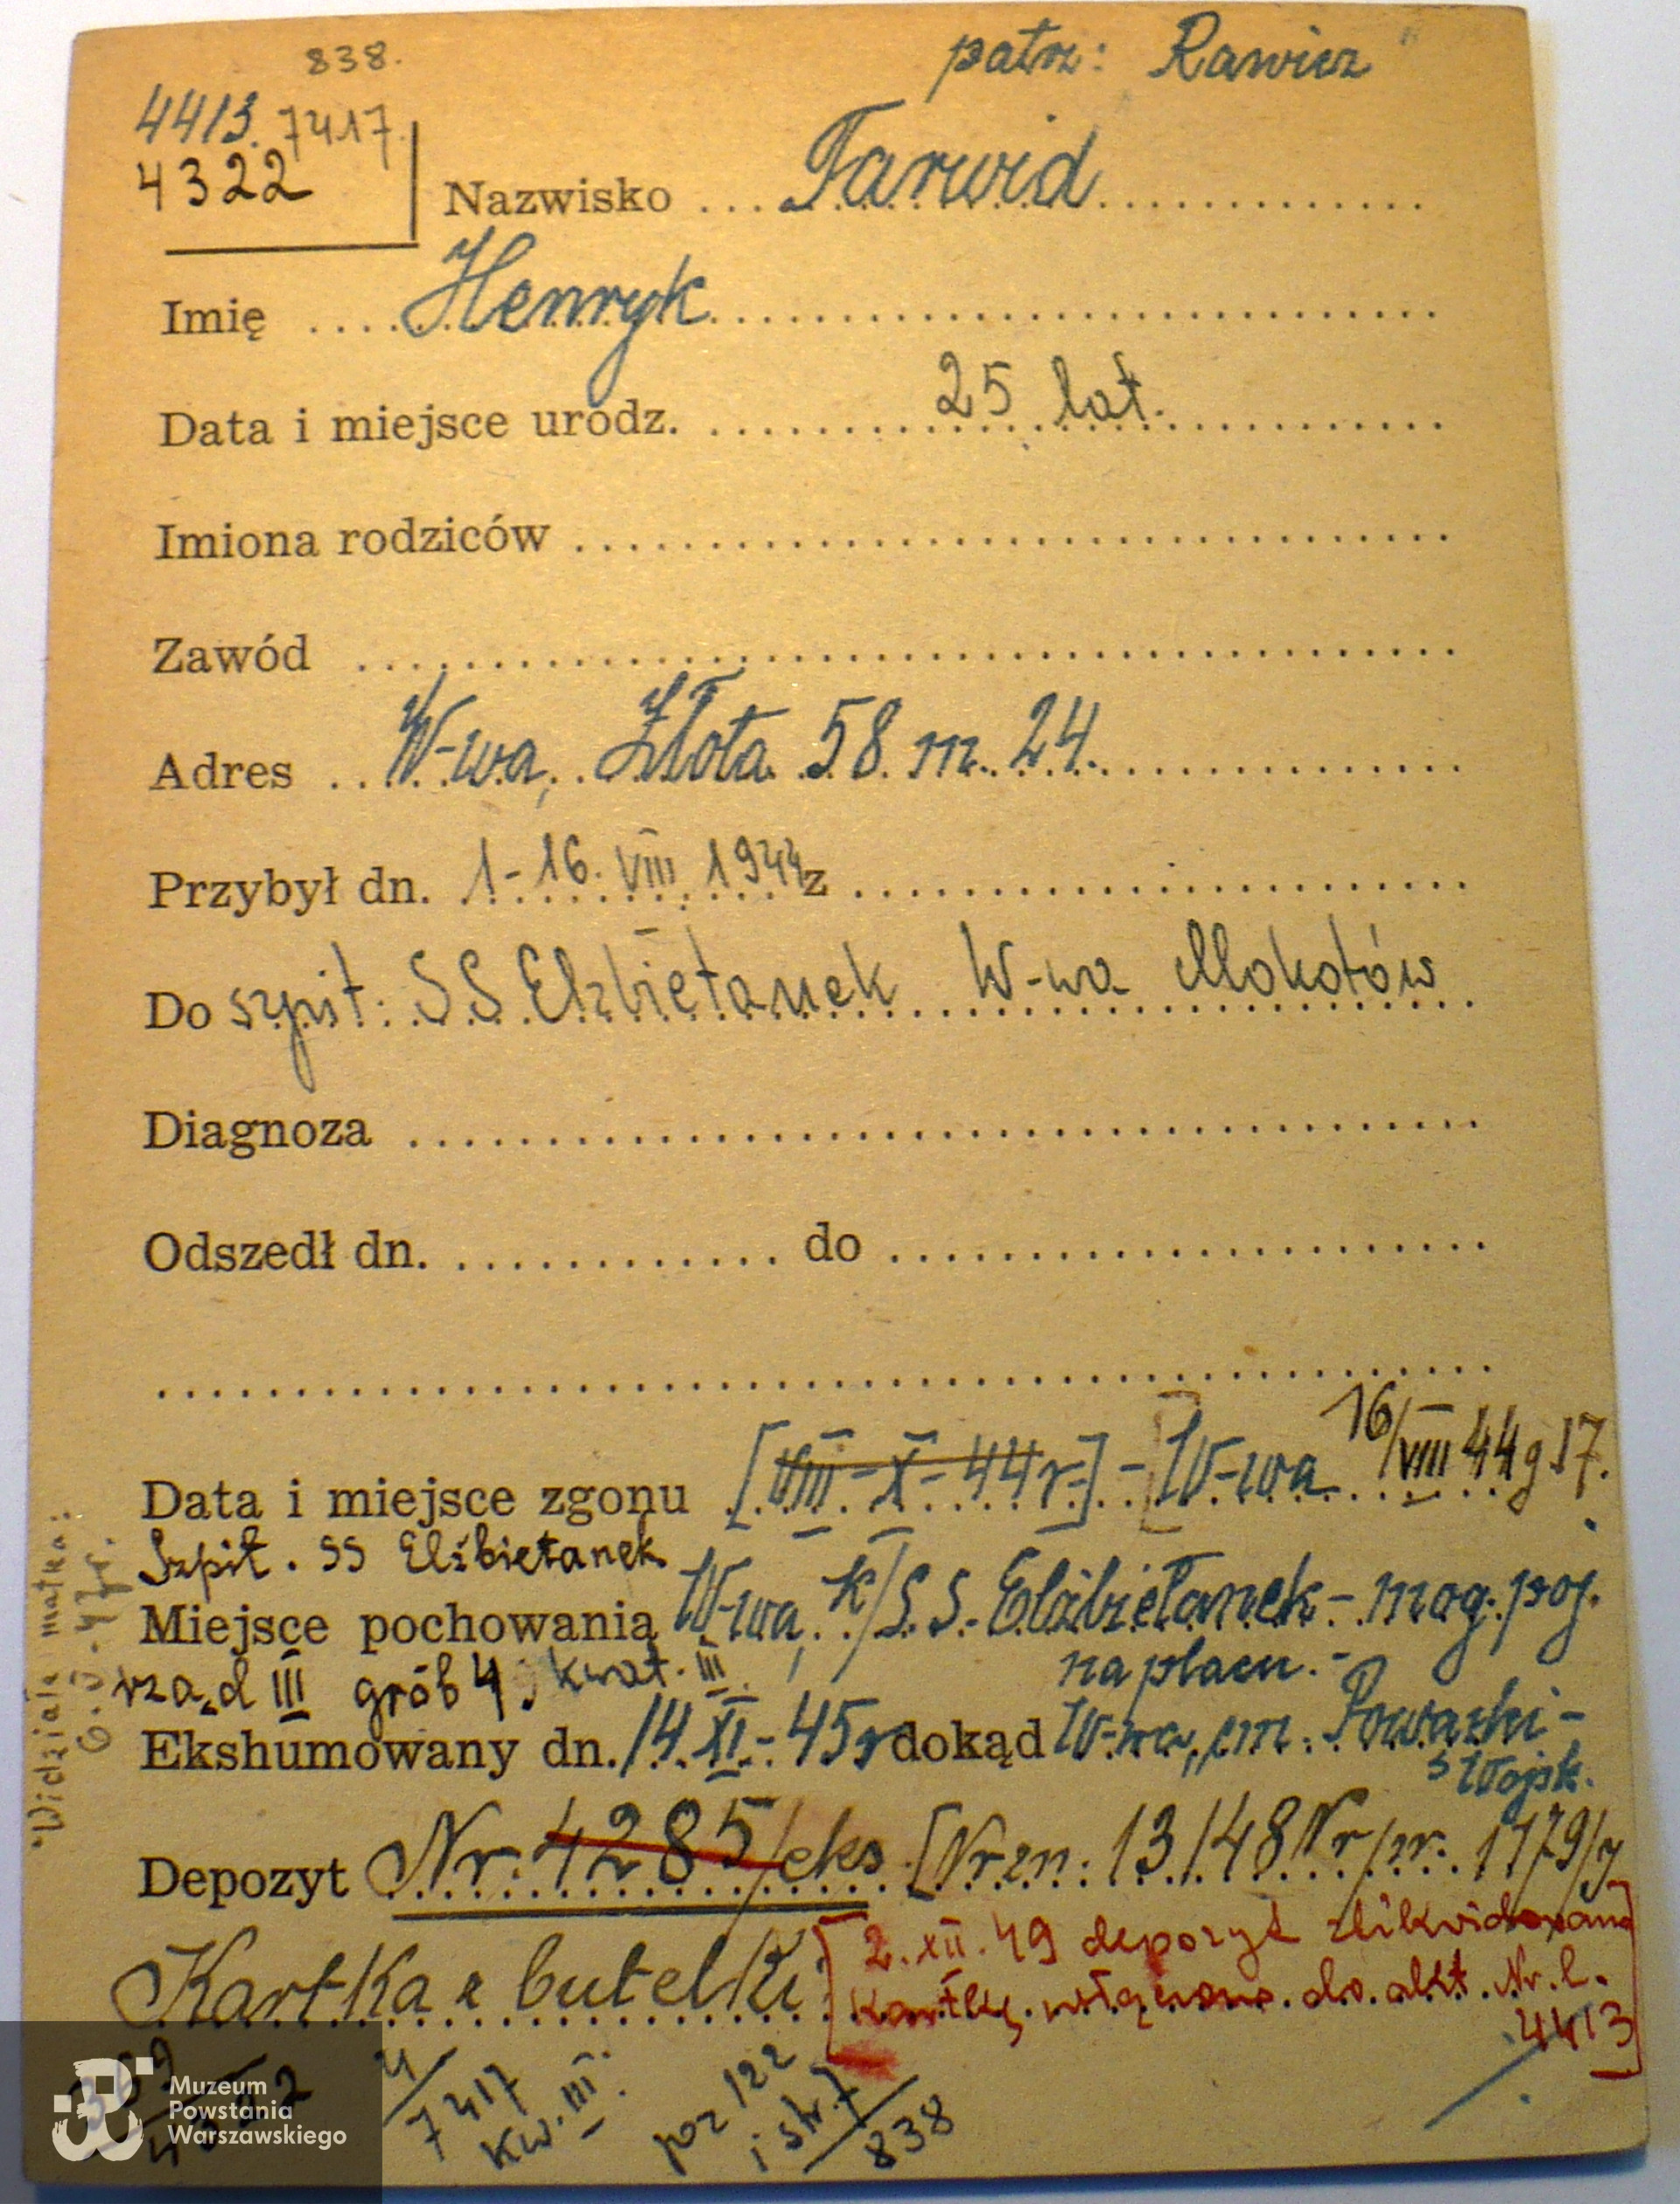 838.
patrz: Rawicz
4413. 7417.
4322
Nazwisko ... Tarwid
Imię .... Henryk
Data i miejsce urodz. 25 lat.
Imiona rodziców
Zawód
Adres .. W-wa, Złota 58 m. 24.
Przybył dn. 1-16. VIII 1944 z
Do szpit: SS Elżbietanek W-wa Mokotów
Diagnoza
Odszedł dn. do
Data i miejsce zgonu [VIII-X-44r.] - [W-wa 16/VIII 44 g 17.
Szpit. SS Elżbietanek
Miejsce pochowania W-wa, k/S.S. Elżbietanek - mog. poj.
na placu. -
rząd III grób 4, kwat. III
Ekshumowany dn. 14.XI.-45r dokąd W-wa, cm. Powązki -
Wojsk.
Depozyt Nr. 4285/eks [Nr zn. 13/48 Nr pr. 1179/
Kartka z butelki
[2.XII.49 depozyt zlikwidowano
kartkę włączono do akt Nr. l.
4413]
Widziała matka:
4322
4/7417
kw. III.
poz 122
i str. 7
838
Muzeum
Powstania
Warszawskiego